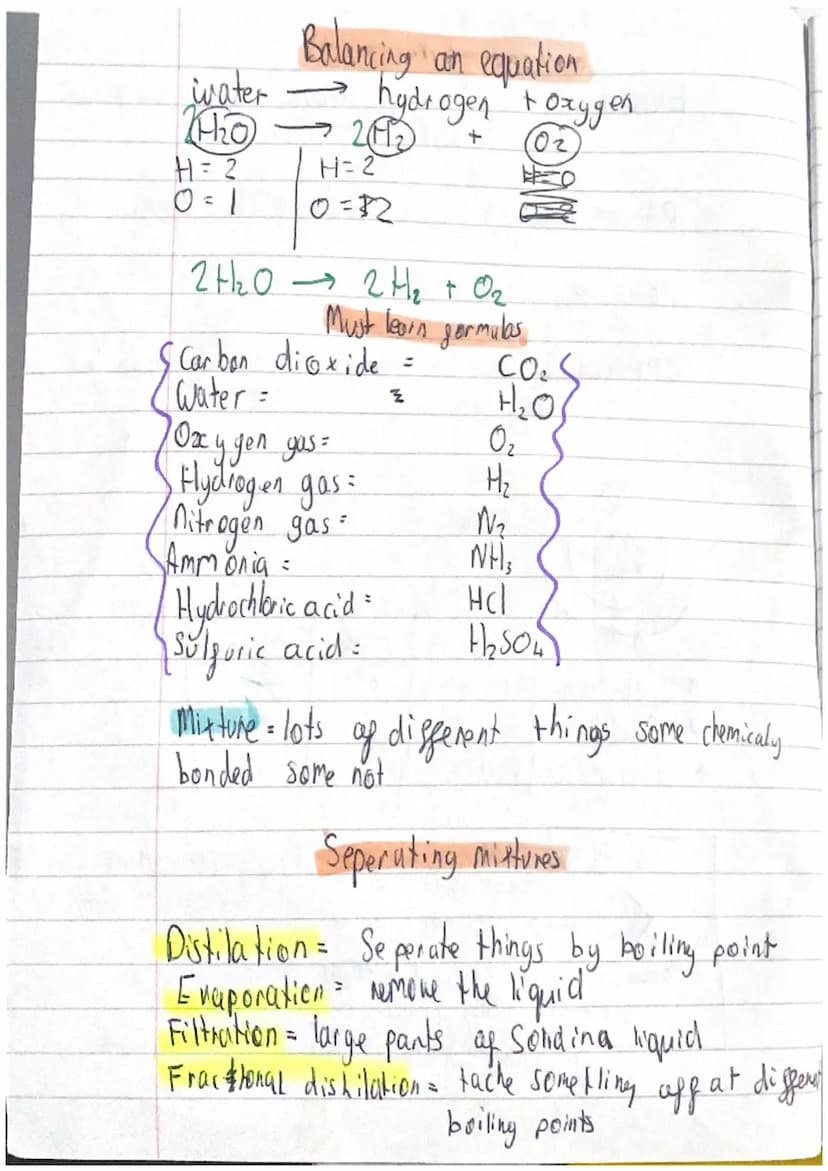 Balancing an equation
water → hydrogen + oxygen
2H₂O → 2H₂ + O₂
H = 2 | H = 2
O = 1 | O = 2
2H₂O → 2H₂ + O₂
Must learn formulas
Carbon dioxide = CO₂
Water = H₂O
Oxygen gas = O₂
Hydrogen gas = H₂
Nitrogen gas = N₂
Ammonia = NH₃
Hydrochloric acid = HCl
Sulfuric acid = H₂SO₄
Mixture = lots of different things some chemicaly
bonded some not
Seperating mixtures
Distilation = Seperate things by boiling point
Evaporation = remove the liquid
Filtration = large parts of in a liquid
Fractional distilation = something off at
boiling points